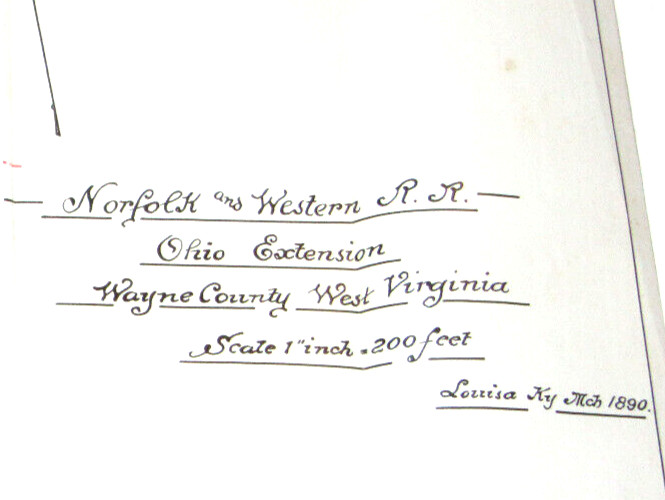 — Norfolk and Western R. R. —
Ohio Extension
Wayne County West Virginia
Scale 1" inch = 200 feet
Louisa Ky Mch 1890.